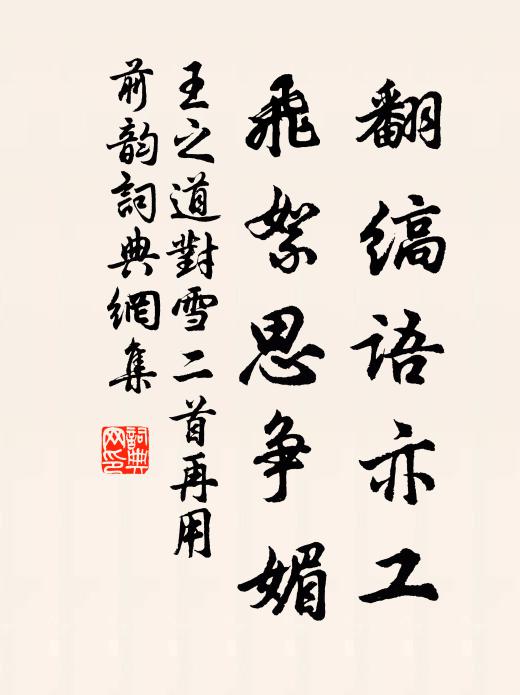 翻縞語亦工
飛絮思爭媚
王之道對雪二首再用
前韵詞典網集
詞典
网印